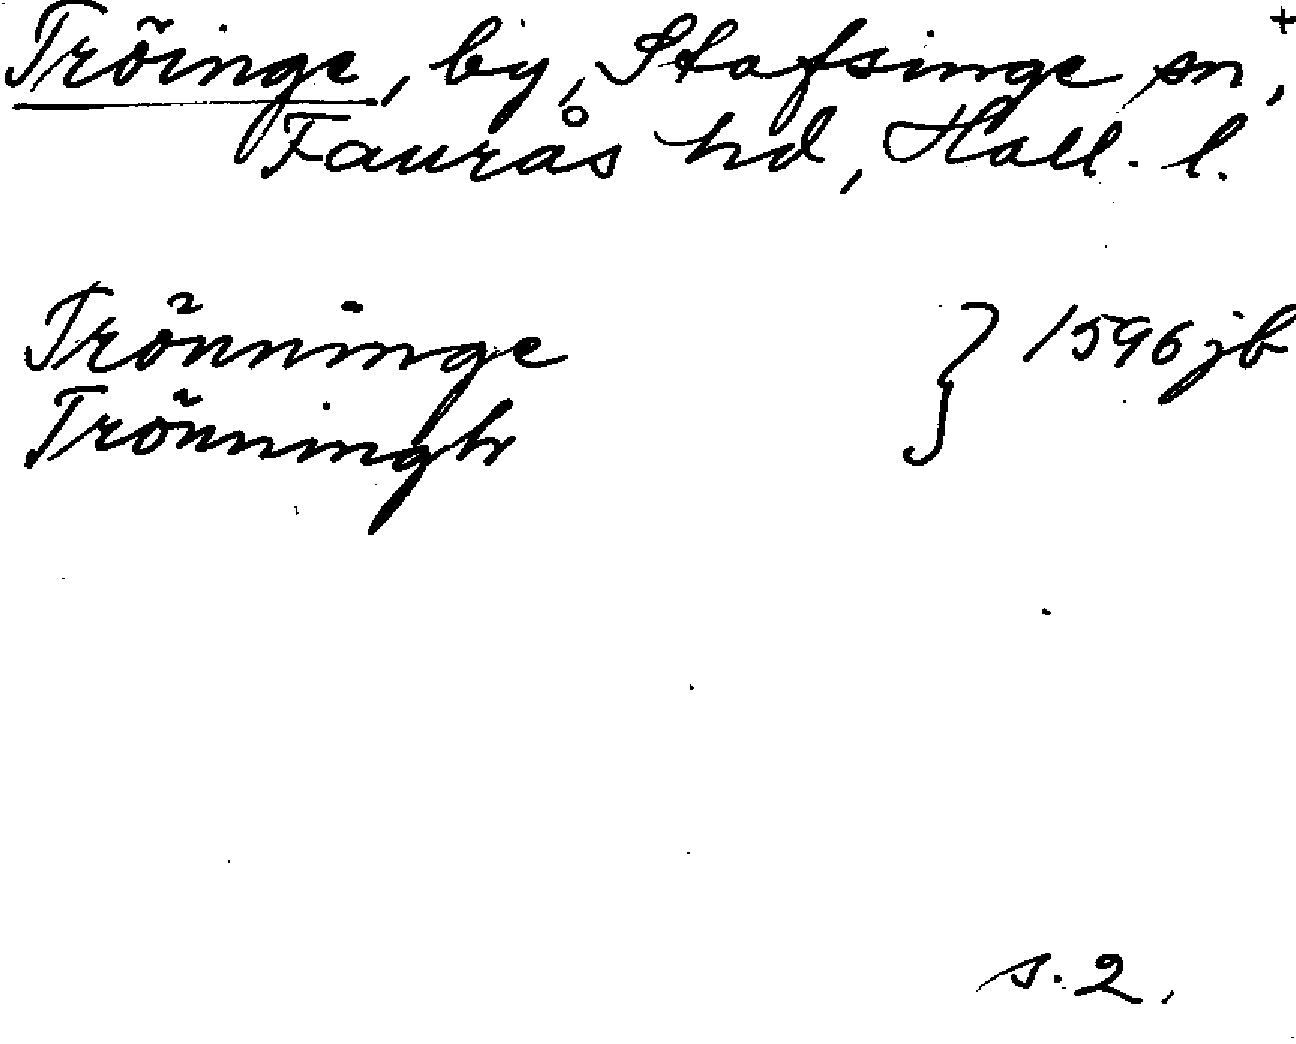 Tröinge, by, Stafsinge sn, +
Faurås hd, Hall. l.
Trönninge } 1596 jb
Trönningh
s. 2.